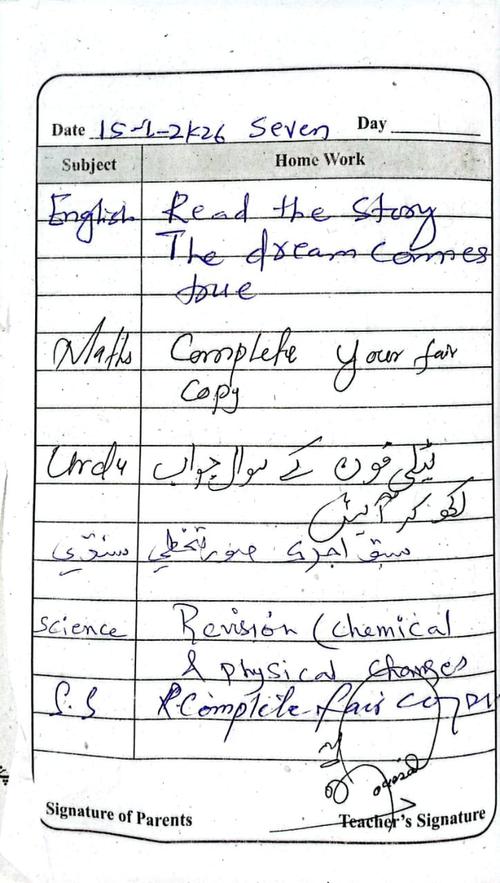 Date 15-1-2K26 Seven Day
Subject Home Work
English Read the Story
The dream Commes
true
Maths Complete your fair
copy
Urdu ٹیلی فون کے سوال جواب
لکھ کر آئیں
سنڌي سبق آخري
Science Revision (chemical
& physical changes
S.S Complete fair copy
Signature of Parents Teacher's Signature